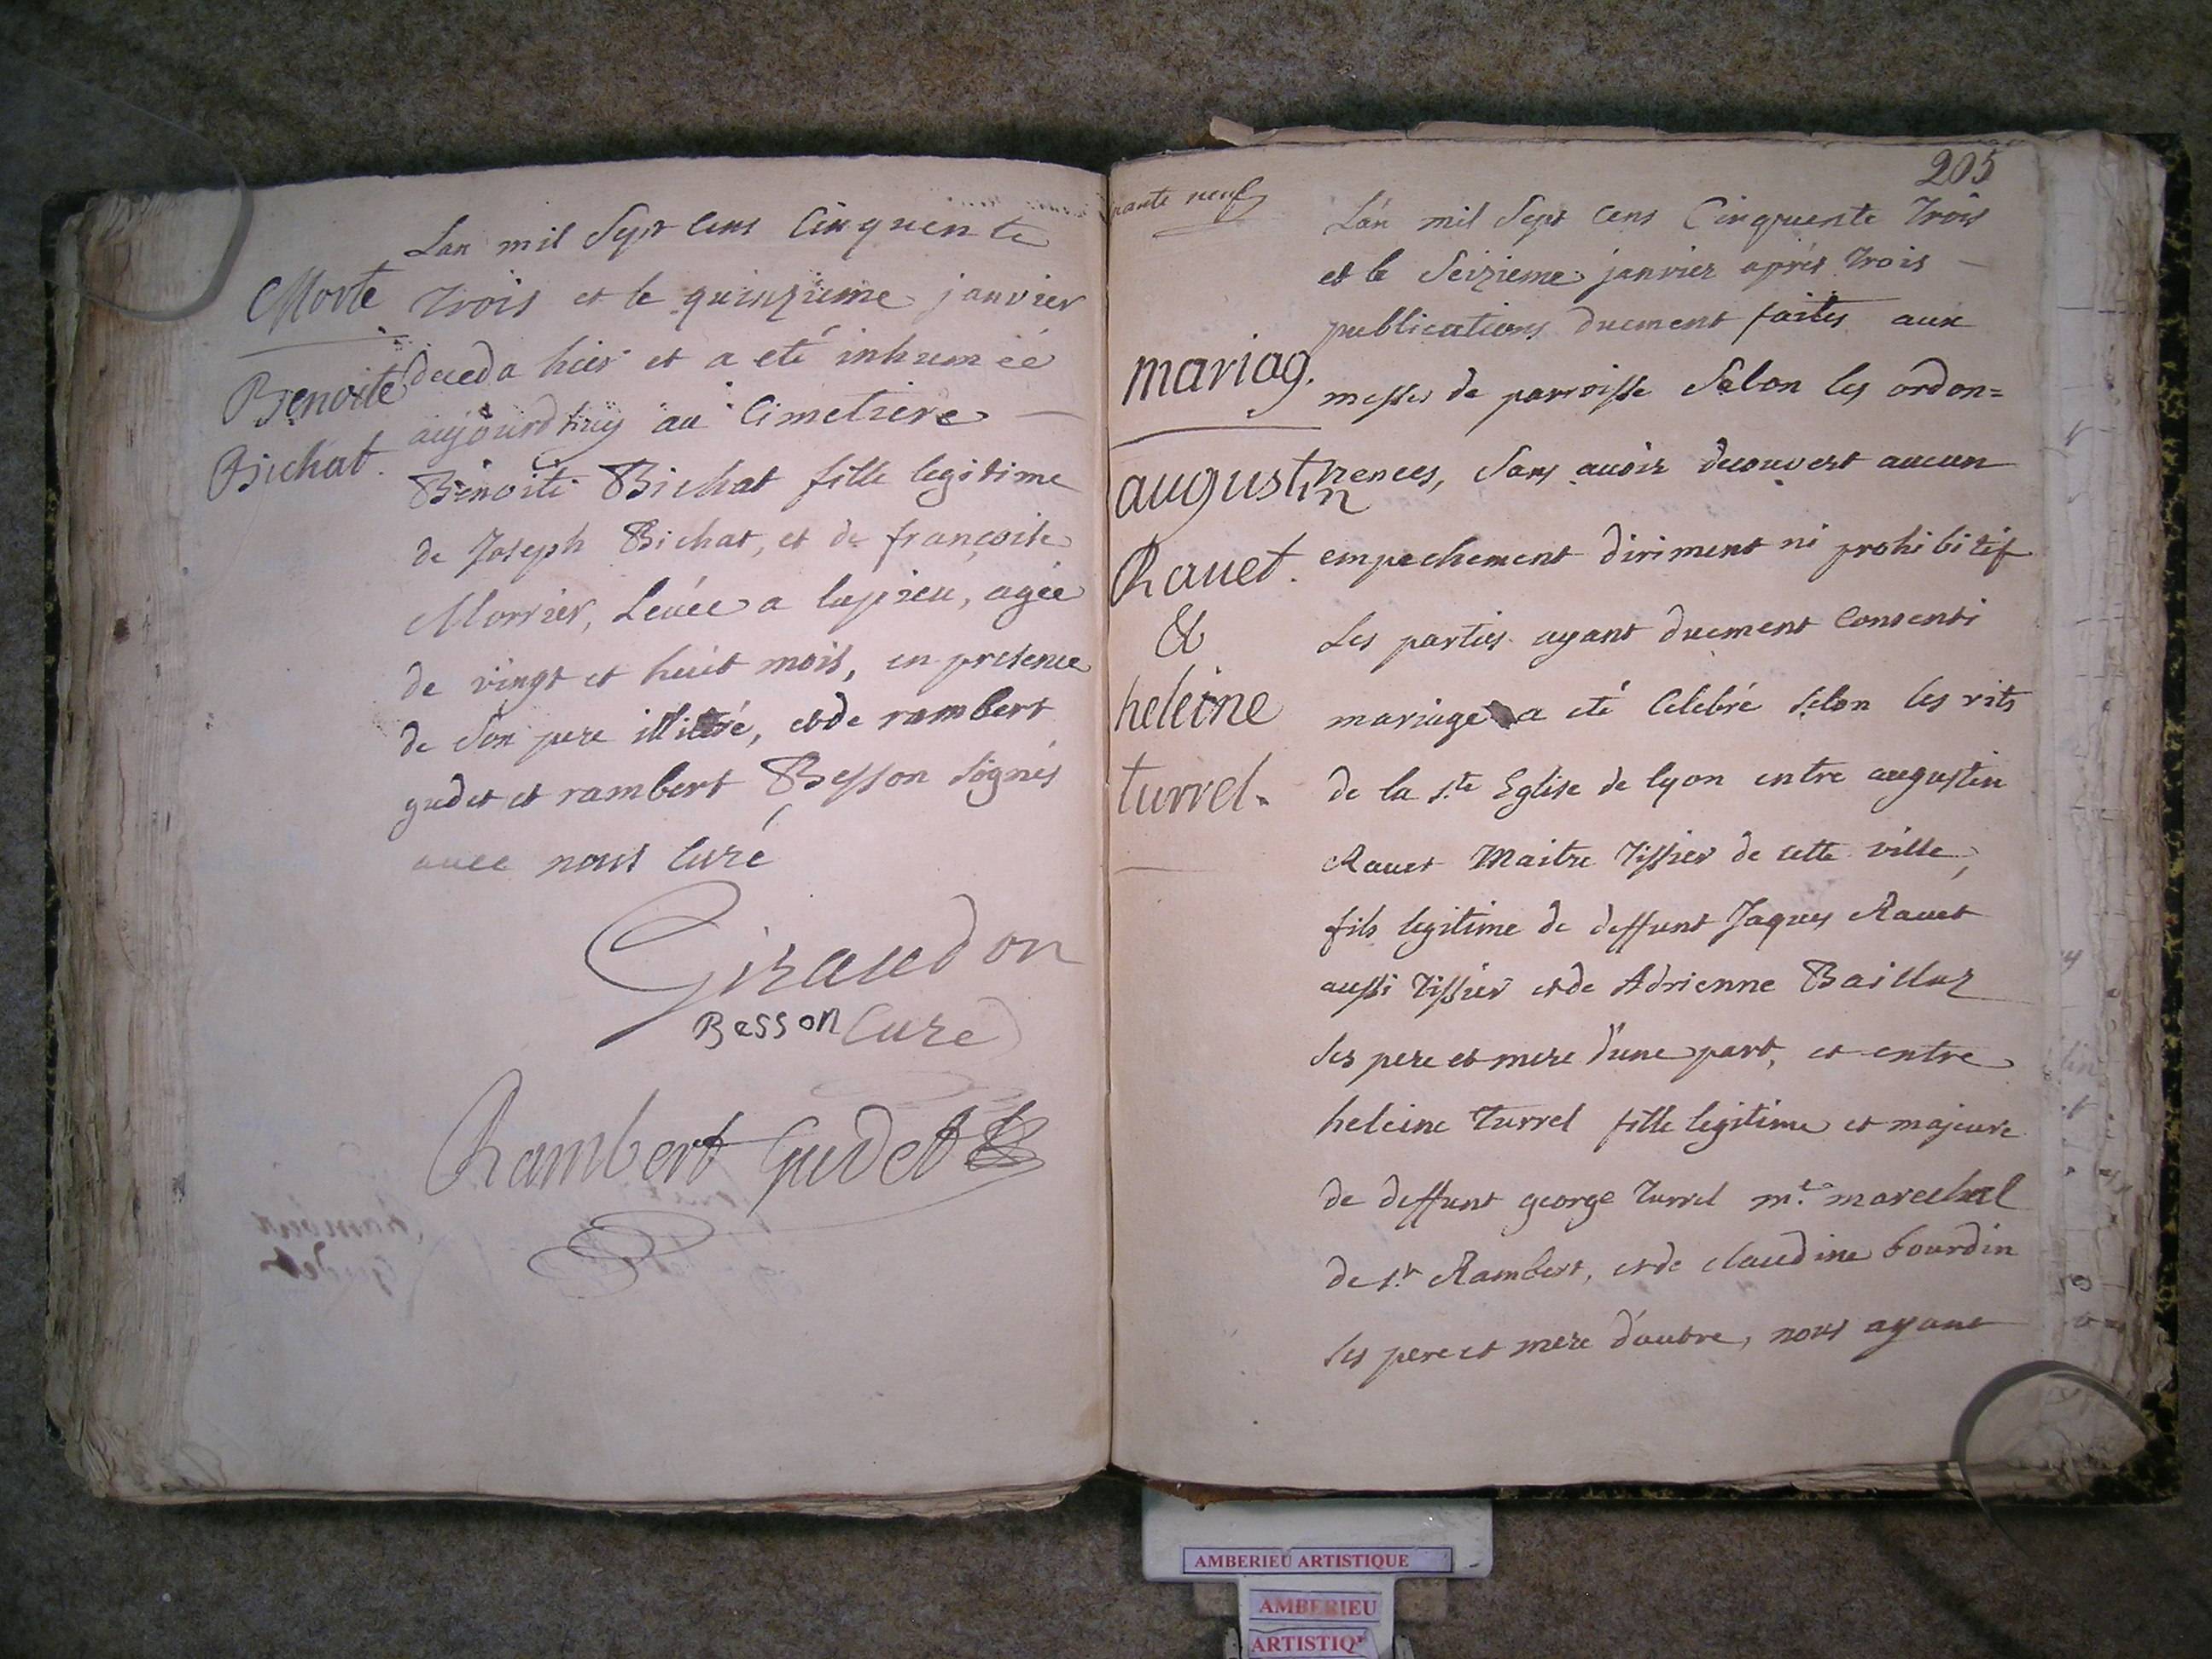 Morte
Benoite
Bichat.
Lan mil Sept Cens Cinquente
Trois et le quinzieme janvier
deceda hier et a eté inhumée
aujourdhuy au Cimetiere
Benoite Bichat fille legitime
de Joseph Bichat, et de françoise
Morrier, Levée a lupieu, agée
de vingt et huit mois, en presence
de Son pere illitré, et de rambert
gudet et rambert Besson Signés
avec nous Curé
Giraudon
Besson Curé
Rambert Gudet
205
rante neuf
mariag.
augustin
Ravet.
&
heleine
turrel.
L'an mil Sept Cens Cinquente Trois
et le Seizieme janvier aprés Trois
publications duement faites aux
messes de parroisse Selon les ordon=
nences, Sans avoir decouvert aucun
empechement diriment ni prohibitif
Les parties ayant duement Consenti
mariage a eté Celebré Selon les rits
de la s.te Eglise de lyon entre augustin
Ravet Maitre Tissier de cette ville,
fils legitime de deffunt Jaques Ravet
aussi Tissier et de Adrienne
Ses pere et mere d'une part, et entre
heleine Turrel fille legitime et majeure
de deffunt george Turrel m.e marechal
de s.t Rambert, et de claudine bourdin
Ses pere et mere d'autre, nous ayant
AMBERIEU ARTISTIQUE
AMBERIEU
ARTISTIQ